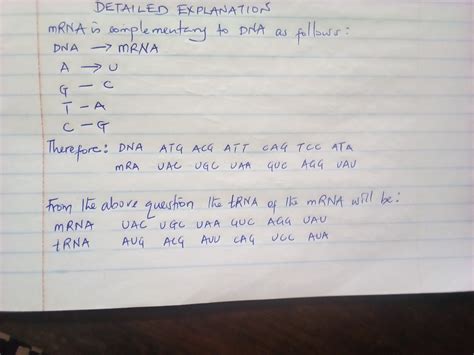 DETAILED EXPLANATION
mRNA is complementary to DNA as follows:
DNA → mRNA
A → U
G — C
T — A
C — G
Therefore: DNA ATG ACG ATT CAG TCC ATA
mRA UAC UGC UAA GUC AGG UAU
From the above question the tRNA of the mRNA will be:
mRNA UAC UGC UAA GUC AGG UAU
tRNA AUG ACG AUU CAG UCC AUA